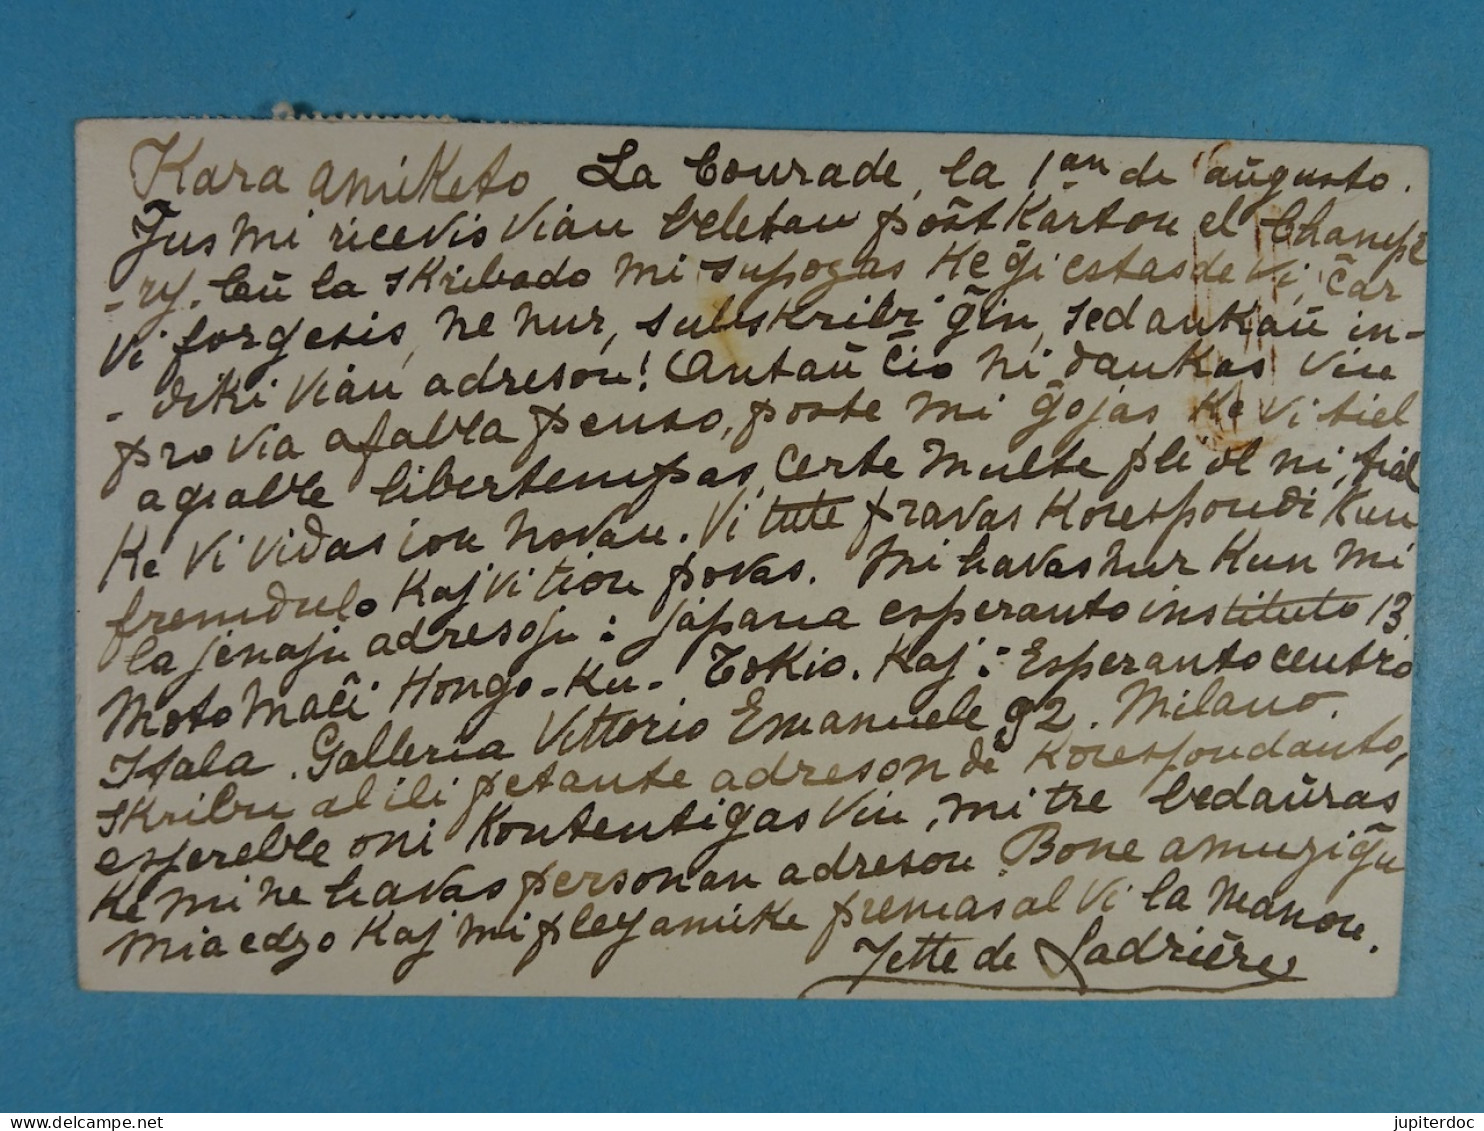 Kara amiketo La Courade, la 1an de aŭgusto.
Jus mi ricevis vian beletan poŝtkarton el Champé
-ry. Laŭ la skribado mi supozas ke ĝi estas de vi, ĉar
vi forgesis, ne nur, subskribi ĝin, sed ankaŭ in-
-diki vian adreson! Antaŭ ĉio mi dankas vin
pro via afabla penso, poste mi ĝojas ke vi tiel
agrable libertempas, certe multe pli ol mi, tial
ke vi vidas ion novan. Vi tute pravas korespondi kun
fremdulo kaj vi tion povas. Mi havas nur kun mi
la jenajn adresojn: Japana esperanto instituto 13
Moto Maĉi Hongo-Ku-Tokio. Kaj: Esperanto centro
Itala. Galleria Vittorio Emanuele 92. Milano.
Skribu al ili petante adreson de korespondanto,
espereble oni kontentigas vin, mi tre bedaŭras
ke mi ne havas personan adreson. Bone amuziĝu
mia edzo kaj mi plej amike premas al vi la manon.
Jette de Ladrière
jupiterdoc